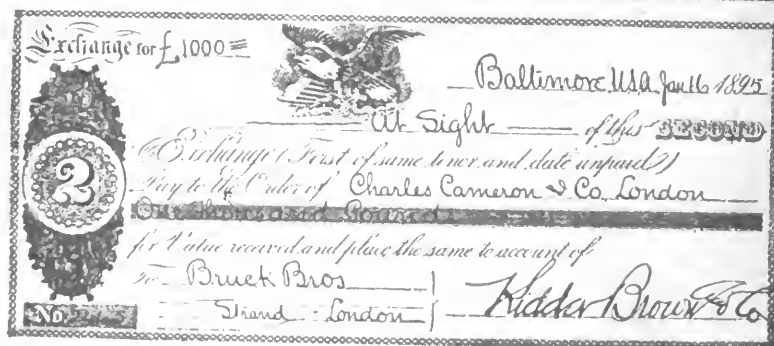 Exchange for £1000 =
Baltimore, USA Jan 16 1895
At Sight of this SECOND
Exchange (First of same tenor and date unpaid)
Pay to the Order of Charles Cameron & Co, London
One thousand Pounds
for Value received and place the same to account of
To Bruck Bros
Strand London
Kidder Brown & Co
2
No